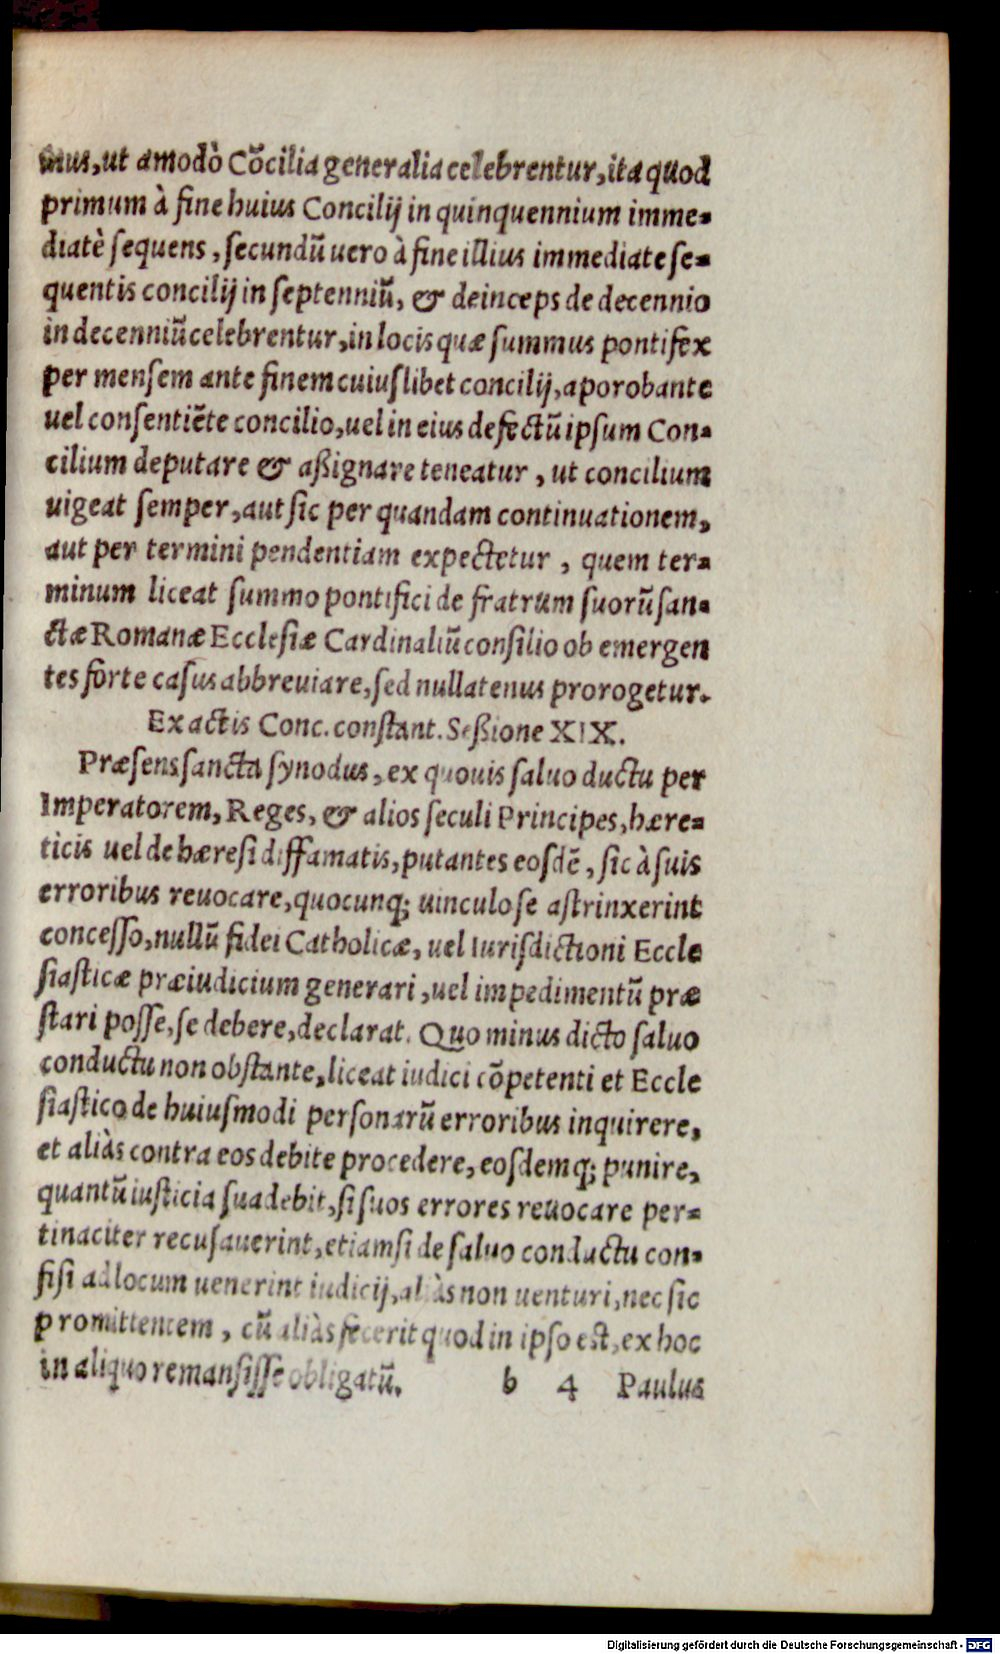 mus, ut amodò Cõcilia generalia celebrentur, ita quod
primum à fine huius Concilij in quinquennium imme-
diatè ſequens, ſecundũ uero à fine illius immediate ſe-
quentis concilij in ſeptenniũ, & deinceps de decennio
in decenniũ celebrentur, in locis quæ ſummus pontifex
per menſem ante finem cuiuſlibet concilij, aporobante
uel conſentiẽte concilio, uel in eius defectũ ipſum Con-
cilium deputare & aßignare teneatur, ut concilium
uigeat ſemper, aut ſic per quandam continuationem,
aut per termini pendentiam expectetur, quem ter-
minum liceat ſummo pontifici de fratrum ſuorũ ſan-
ctæ Romanæ Eccleſiæ Cardinaliũ conſilio ob emergen
tes forte caſus abbreuiare, ſed nullatenus prorogetur.
Ex actis Conc. conſtant. Seßione XIX.
Præſens ſancta ſynodus, ex quouis ſaluo ductu per
Imperatorem, Reges, & alios ſeculi Principes, hære-
ticis uel de hæreſi diffamatis, putantes eoſdẽ, ſic à ſuis
erroribus reuocare, quocunq; uinculo ſe aſtrinxerint
conceſſo, nullũ fidei Catholicæ, uel Iuriſdictioni Eccle
ſiaſticæ præiudicium generari, uel impedimentũ præ
ſtari poſſe, ſe debere, declarat. Quo minus dicto ſaluo
conductu non obſtante, liceat iudici cõpetenti et Eccle
ſiaſtico de huiuſmodi perſonarũ erroribus inquirere,
et aliàs contra eos debite procedere, eoſdemq; punire,
quantũ iuſticia ſuadebit, ſi ſuos errores reuocare per-
tinaciter recuſauerint, etiamſi de ſaluo conductu con-
fiſi ad locum uenerint iudicij, aliàs non uenturi, nec ſic
promittentem, cũ aliàs fecerit quod in ipſo eſt, ex hoc
in aliquo remanſiſſe obligatũ. b 4 Paulus
Digitalisierung gefördert durch die Deutsche Forschungsgemeinschaft - DFG